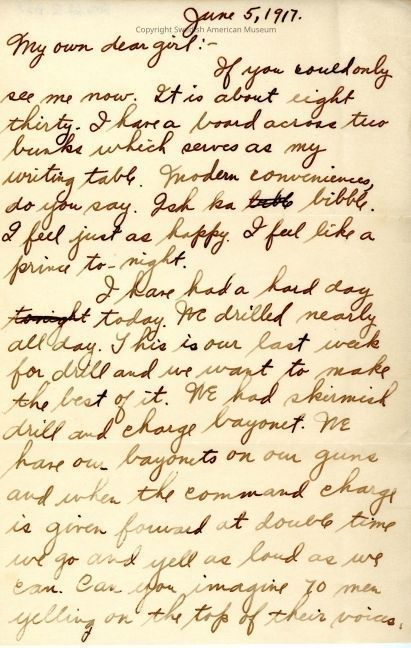 June 5, 1917.
Copyright Swedish American Museum
My own dear girl:-
If you could only
see me now. It is about eight
thirty. I have a board across two
bunks which serves as my
writing table. Modern conveniences,
do you say. Ish ka bibble.
I feel just as happy. I feel like a
prince to-night.
I have had a hard day
tonight today. We drilled nearly
all day. This is our last week
for drill and we want to make
the best of it. We had skirmish
drill and charge bayonet. We
have our bayonets on our guns
and when the command charge
is given forward at double time
we go and yell as loud as we
can. Can you imagine 70 men
yelling on the top of their voices.